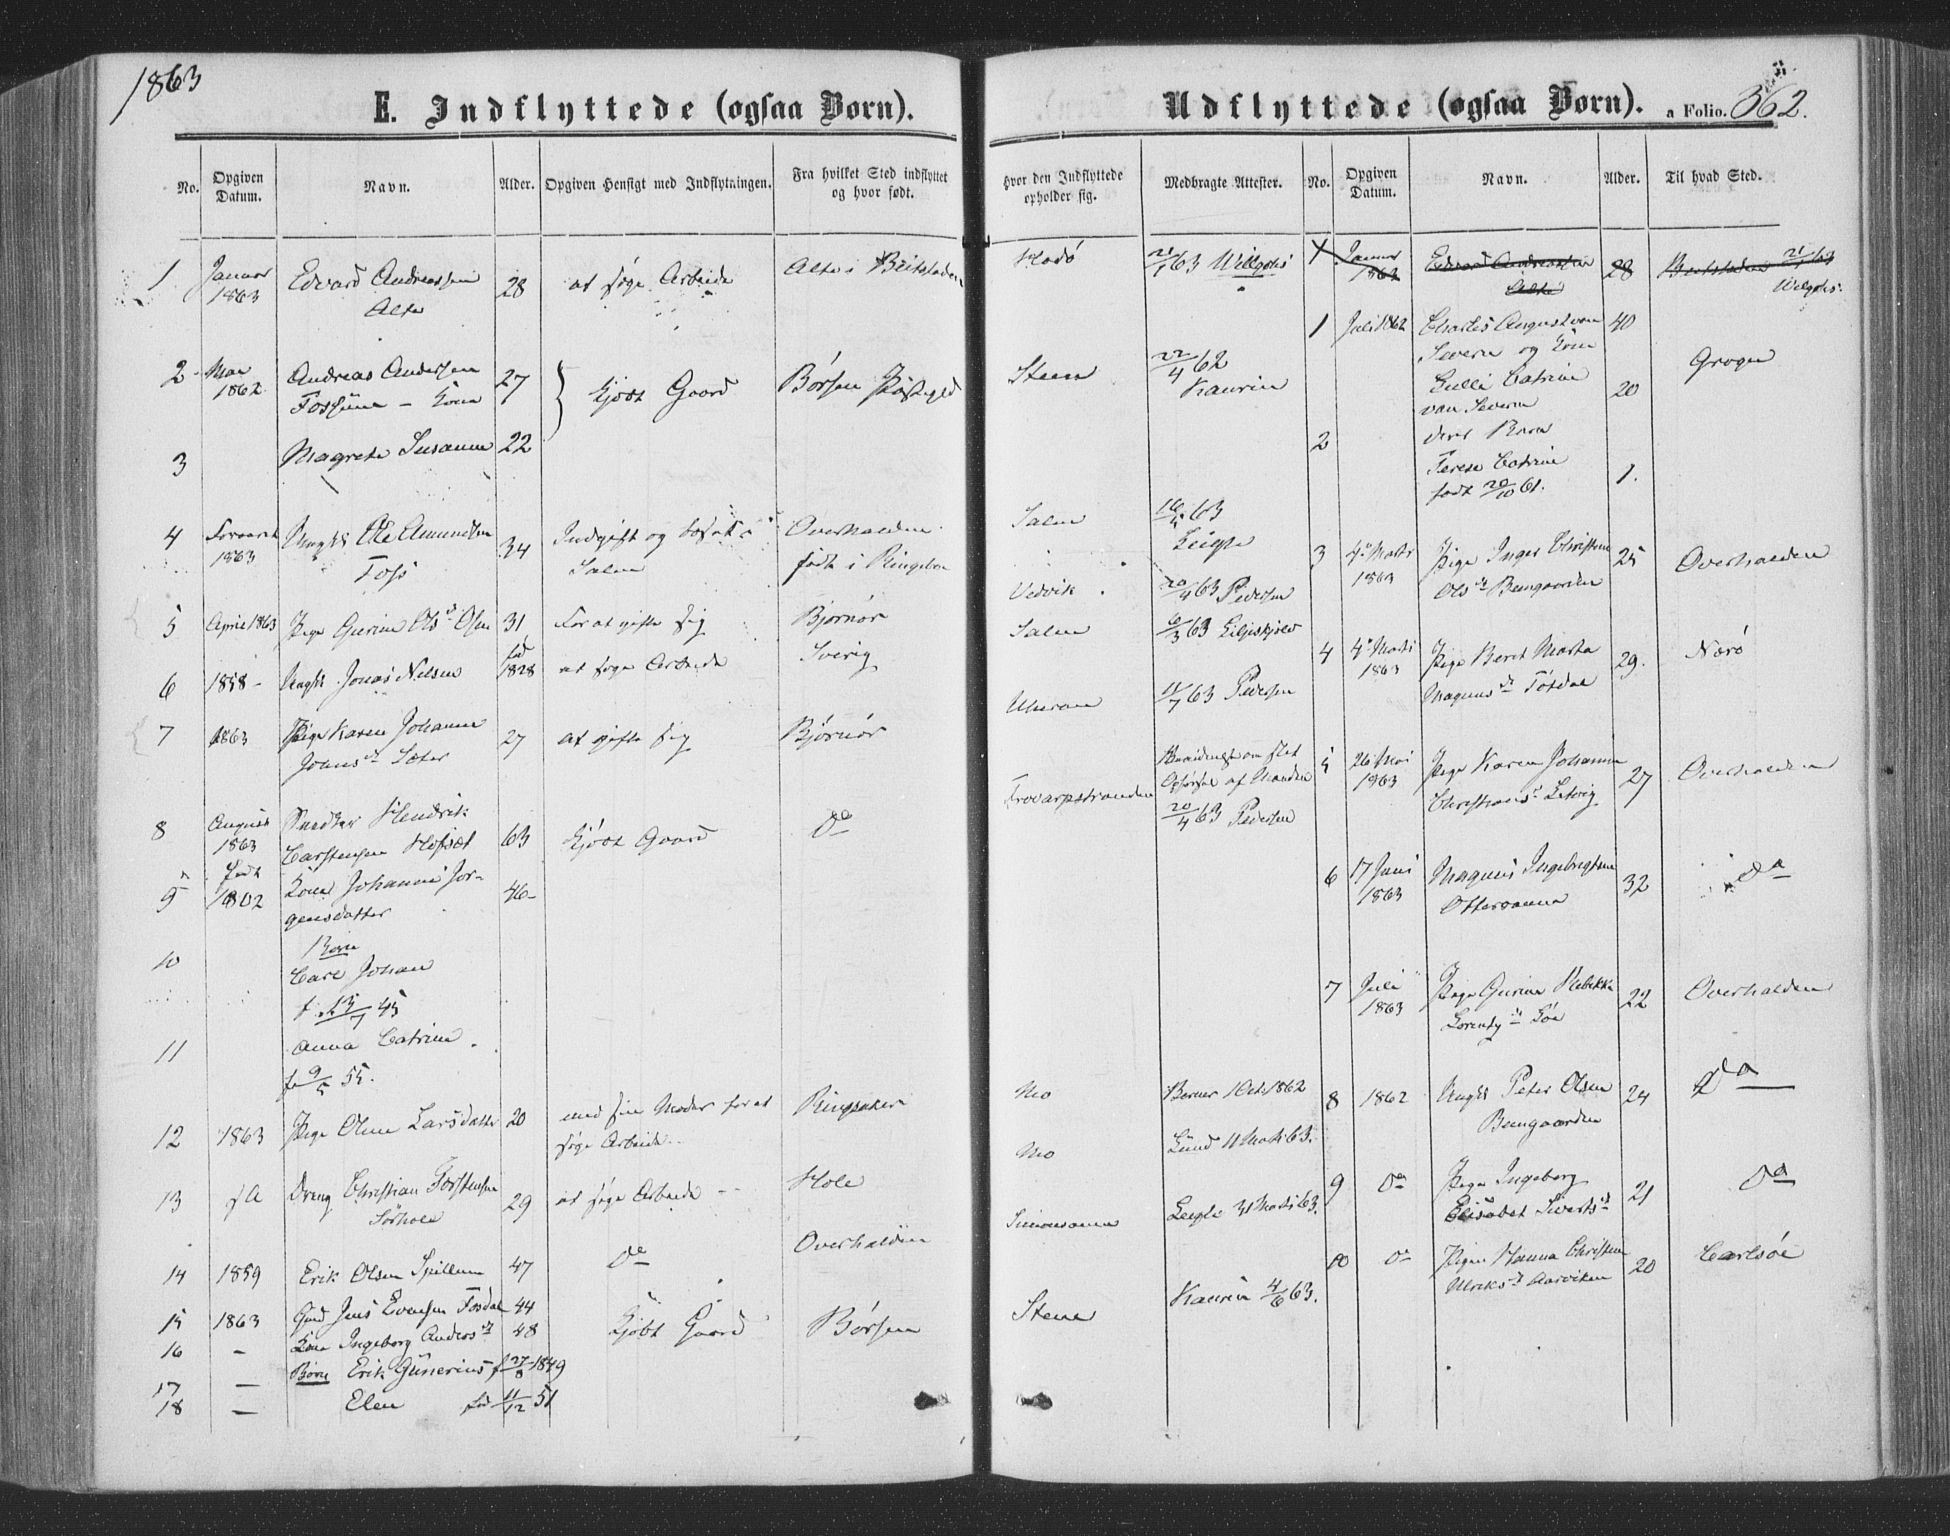 1863
E. Indflyttede (ogsaa Børn).
No. Opgiven Datum. Navn. Alder. Opgiven Hensigt med Indflytningen. Fra hvilket Sted indflyttet og hvor født.
1 Januar 1863 Edvard Andreassen 28 at søge Arbeide Alte i Beitstaden
Alte
2 Mai 1862 Andreas Andersen 27 Kjøbt Gaard Børsen Præstegjeld
Kone
3 Magrete Susanne 22
4 Foraaret 1863 Ungk. Ole Amundsen 34 Indgift og bosat i Overhalden
Foss Salen født i Ringebo
5 April 1863 Pige Gurine Olsd. Olsen 31 for at gifte sig Bjørnør
6 1858 - Ungk. Jonas Nilsen fød 1828 at søge Arbeide Sverig
7 1863 Pige Karen Johanna 27 at gifte sig Bjørnør
Johnsd. Sæter
8 August 1863 Hendrik 63 Kjøbt Gaard Do
Carstensen Hofset
9 født 1802 Kone Johanna Jør- 46 -
gensdatter
Børn
10 Carl Johan
f. 13/7 45
11 Anna Catrine
f. 9/5 55.
12 1863 Pige Oline Larsdatter 20 med sin Moder for at Ringsaker
søge Arbeide
13 Dreng Christian Torstensen 29 at søge Arbeide - Hole
Sørhole
14 1859 Erik Olsen Spillum 47 Do Overhalden
15 1863 Gmd Jens Evensen Fosdal 44 Kjøbt Gaard Børsen
16 - Kone Ingeborg Andersd. 48
17 - Børn Erik Gunerius f 27/8 1849
18 - Elen fød 11/12 51
Udflyttede (ogsaa Børn). a Folio. 362.
Hvor den Indflyttede opholder sig. Medbragte Attester. No. Opgiven Datum. Navn. Alder. Til hvad Sted.
Hodø 21/1 63 Willgohs 1 Januar 1863 Edvard Andreassen 28 Beitstaden 21/1 63
Alte Willgohs
1 Juli 1862 Charles August van 40
Severn og Kone
Steen 22/4 62 Grogn
Kaurin Catrine 20
van Severn
2 deres Barn
Terese Catrine 1.
født 20/10 61.
Salen 16/4 63
3 4de Marts 1863 Pige Inger Christine 25 Overhalden
Olsd. Bemgaarden
Vedvik 20/4 63 Pedersen
Salen 6/3 63 Liljeskjold
4 4de Marts 1863 Pige Beret Marta 29. Nærø
Magnusd. Fosdal
11/7 63 Pedersen
Opførsel af Manden 5 26 Mai 1863 Pige Karen Johanna 27 Overhalden
20/4 63 Pedersen
6 17 Juni 1863 Magnus Ingebrigtsen 32 Do
7 Juli 1863 Pige Gurine Rebekka 22 Overhalden
Mo Berner 1 Oct. 1862 8 1862 Ungk. Peter Olsen 24 Do
Bemgaarden
Mo Lund 11 Marts 63.
9 Do Pige Ingeborg 21 Do
Elisabet Sivertsd.
31 Marts 63.
10 Do Pigen Hanna Christine 20 Carlsøe
Ulriksd. Aarviken
Stene Kaurin 4/6 63.